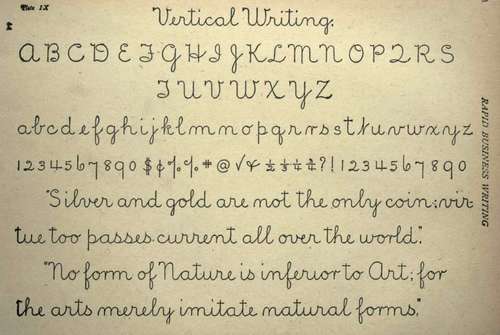 Plate IX
Vertical Writing.
A B C D E F G H I J K L M N O P Q R S
T U V W X Y Z
a b c d e f g h i j k l m n o p q r s s t t u v w x y z
1 2 3 4 5 6 7 8 9 0 $ ¢ % % # @ √ ½ ? ! 1 2 3 4 5 6 7 8 9 0
"Silver and gold are not the only coin; vir-
tue too passes current all over the world."
"No form of Nature is inferior to Art; for
the arts merely imitate natural forms."
RAPID BUSINESS WRITING